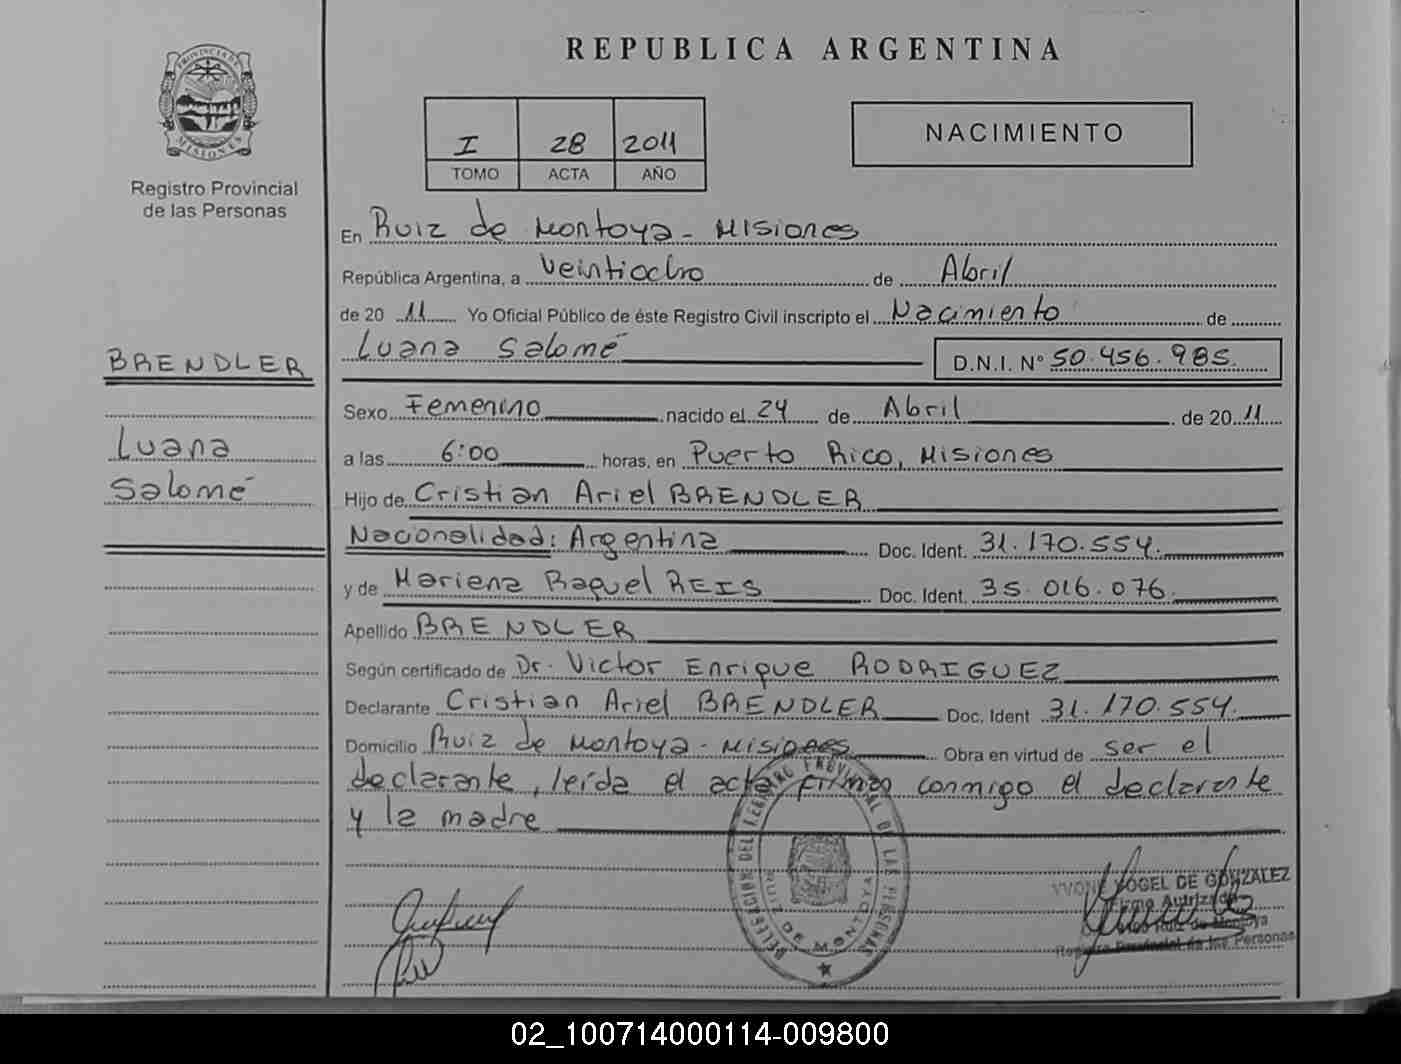 PROVINCIA DE
MISIONES
Registro Provincial
de las Personas
BRENDLER
Luana
Salomé
REPUBLICA ARGENTINA
I 28 2011
TOMO ACTA AÑO
NACIMIENTO
En Ruiz de Montoya - Misiones
República Argentina, a veintiocho de Abril
de 20 11 Yo Oficial Público de éste Registro Civil inscripto el Nacimiento de
Luana Salomé D.N.I. N° 50.456.985.
Sexo Femenino nacido el 24 de Abril de 20 11
a las 6:00 horas, en Puerto Rico, Misiones
Hijo de Cristian Ariel BRENDLER
Nacionalidad: Argentina Doc. Ident. 31.170.554.
y de Mariena Raquel REIS Doc. Ident. 35.016.076.
Apellido BRENDLER
Según certificado de Dr. Victor Enrique RODRIGUEZ
Declarante Cristian Ariel BRENDLER Doc. Ident 31.170.554.
Domicilio Ruiz de Montoya - Misiones Obra en virtud de ser el
declarante, leída el acta firman conmigo el declarante
y la madre
DELEGACION DEL REGISTRO PROVINCIAL DE LAS PERSONAS
RUIZ DE MONTOYA
YVONE VOGEL DE GONZALEZ
Firma Autrizada
Ruiz de Montoya
Registro Provincial de las Personas
02_100714000114-009800